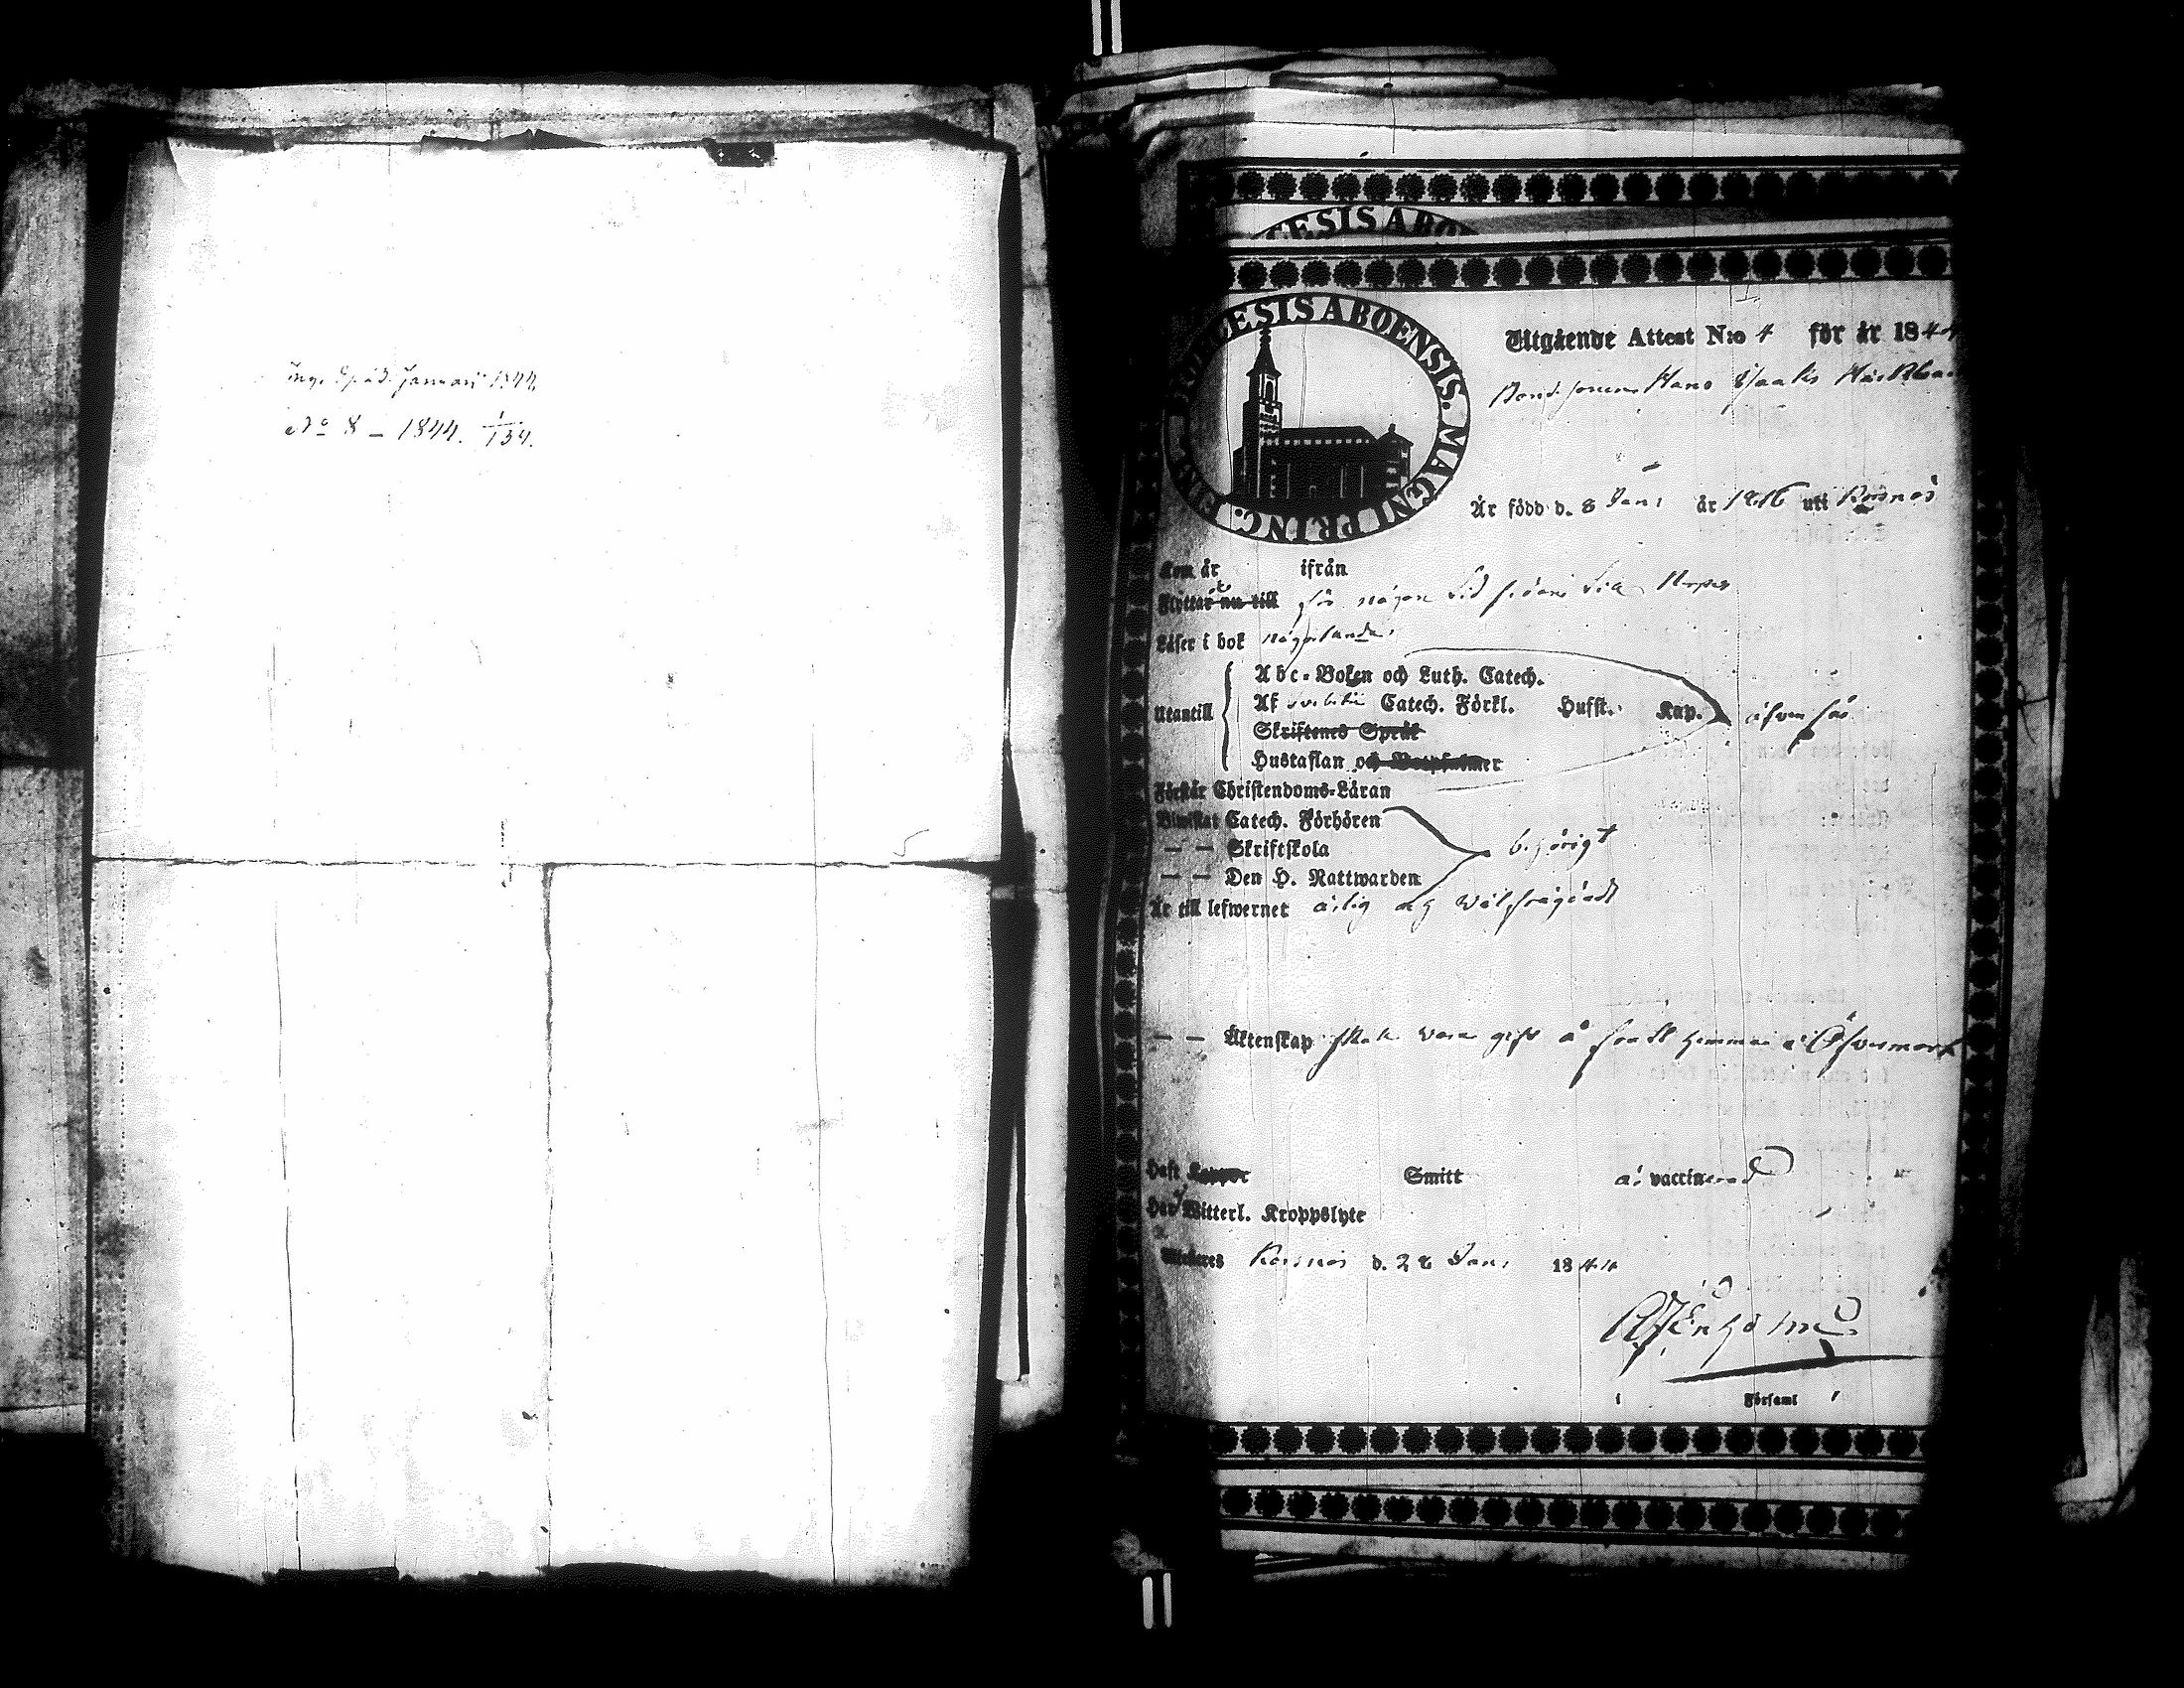 Januari 1844
No 8 — 1844. 1/134.
CESIS ABOE
DIOECESIS ABOENSIS. MAGNI PRINC. FINL.
Utgående Attest N:o 4 för år 1844
Bondesonen Hans Isaaks
Är född d. 8 Jan: år 1816 uti Korsnäs
Kom år ifrån
Flyttar nu till för någon tid sedan till Nerpes
Läser i bok någorlunda
Utantill
Abc-Boken och Luth. Catech.
Af Svebilii Catech. Förkl. Hufst. Kap. äfven så
Skriftenes Språk
Hustaflan och Botpsalmer
Förstår Christendoms-Läran
Biwistat Catech. Förhören
— — Skriftskola behörigt
— — Den H. Nattwarden
Är till lefwernet ärlig och välfrägdad
— — Äktenskap skall vara gift å hemman i Öfvermark
Haft Koppor Smitt är vaccinerad
Har Witterl. Kroppslyte
Korsnäs d. 28 Jan: 1844
i Församl